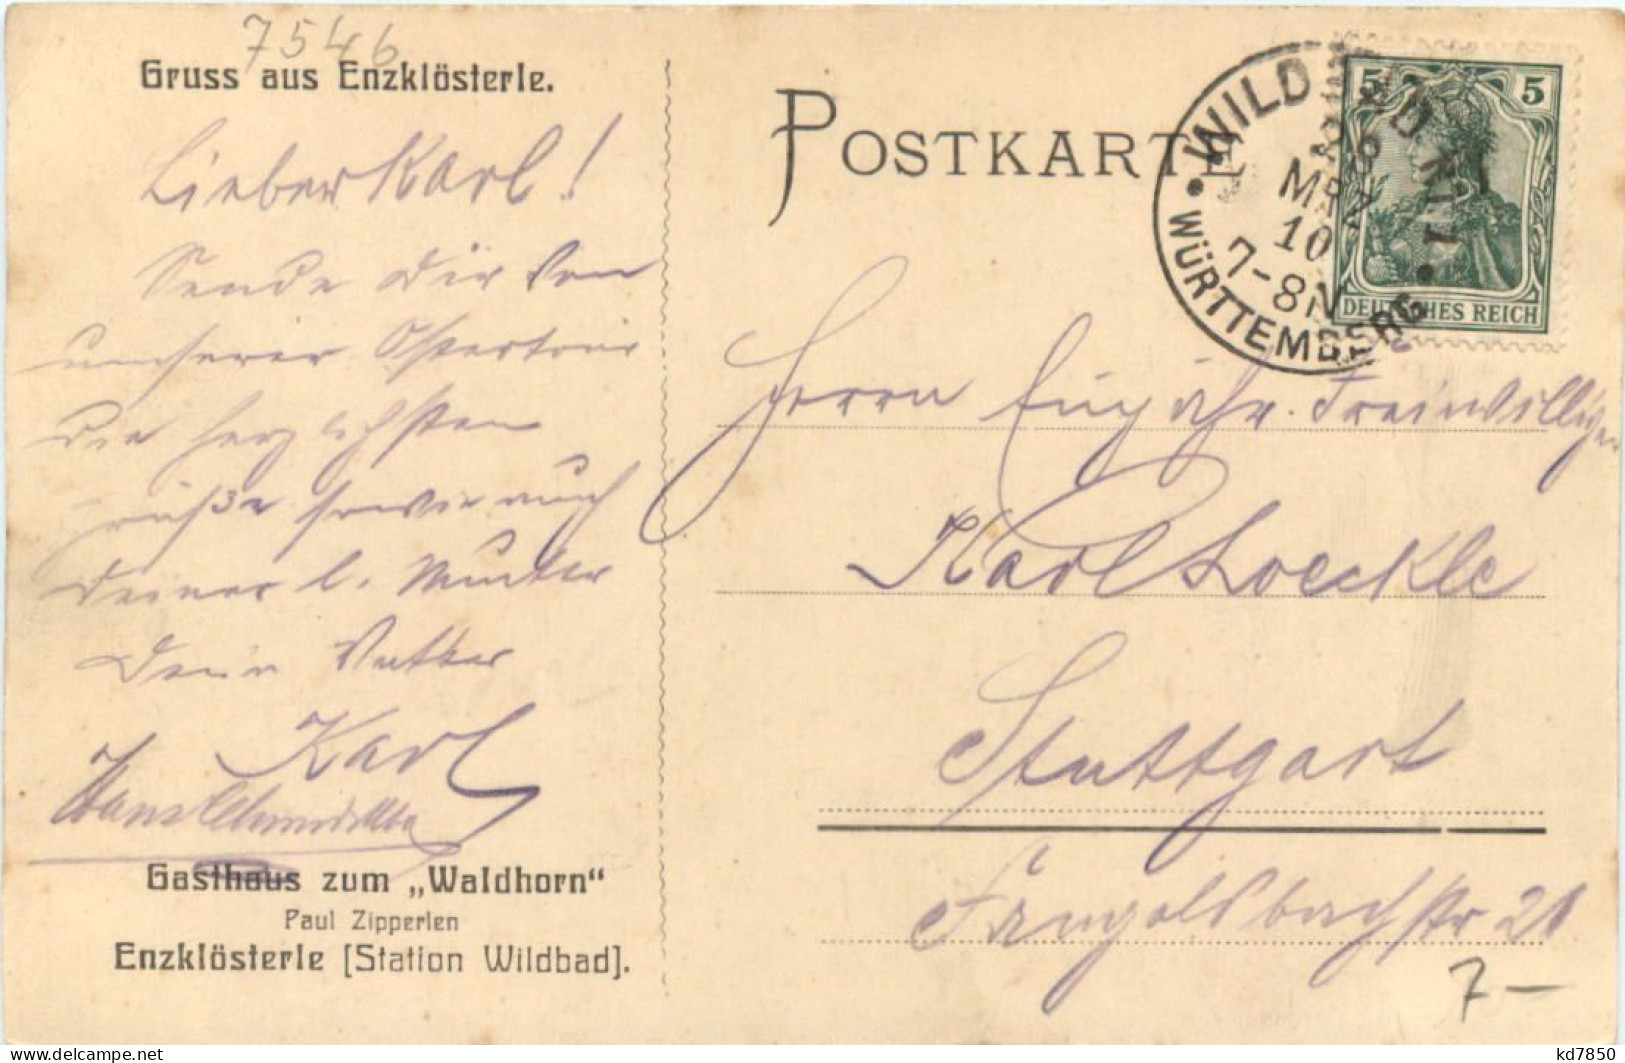 7546
Gruss aus Enzklösterle.
Lieber Karl!
Sende Dir von
unserer Ostertour
die herzlichsten
Grüße sowie auch
Deiner l. Mutter
Dein Vetter
Karl
Hans
Gasthaus zum „Waldhorn“
Paul Zipperlen
Enzklösterle [Station Wildbad].
POSTKARTE
WILDBAD
MRZ
10
7-8N
WÜRTTEMBERG
5 5
DEUTSCHES REICH
Herrn Einjähr. Freiwilligen
Karl Loeckle
Stuttgart
Fangelsbachstr 21
7 –
https://www.delcampe.net
kd7850